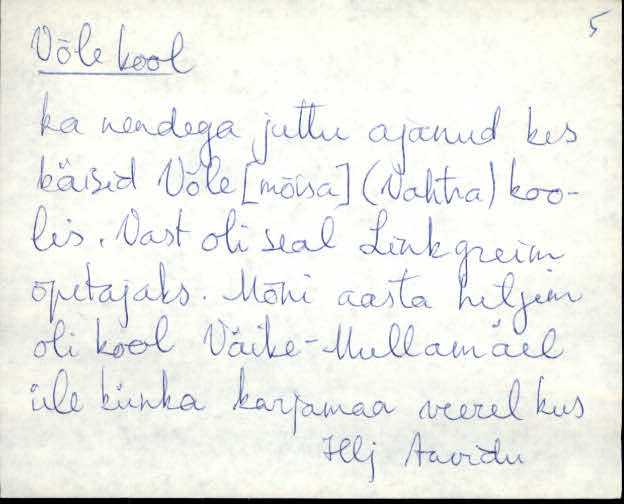 5
Võle kool
ka nendega juttu ajanud kes
käisid Võle [mõisa] (Vahtra) koo-
lis. Vast oli seal Linkgreim
õpetajaks. Mõni aasta hiljem
oli kool Väike-Mullamäel
üle künka karjamaa veerel kus
Hlj Aavidu